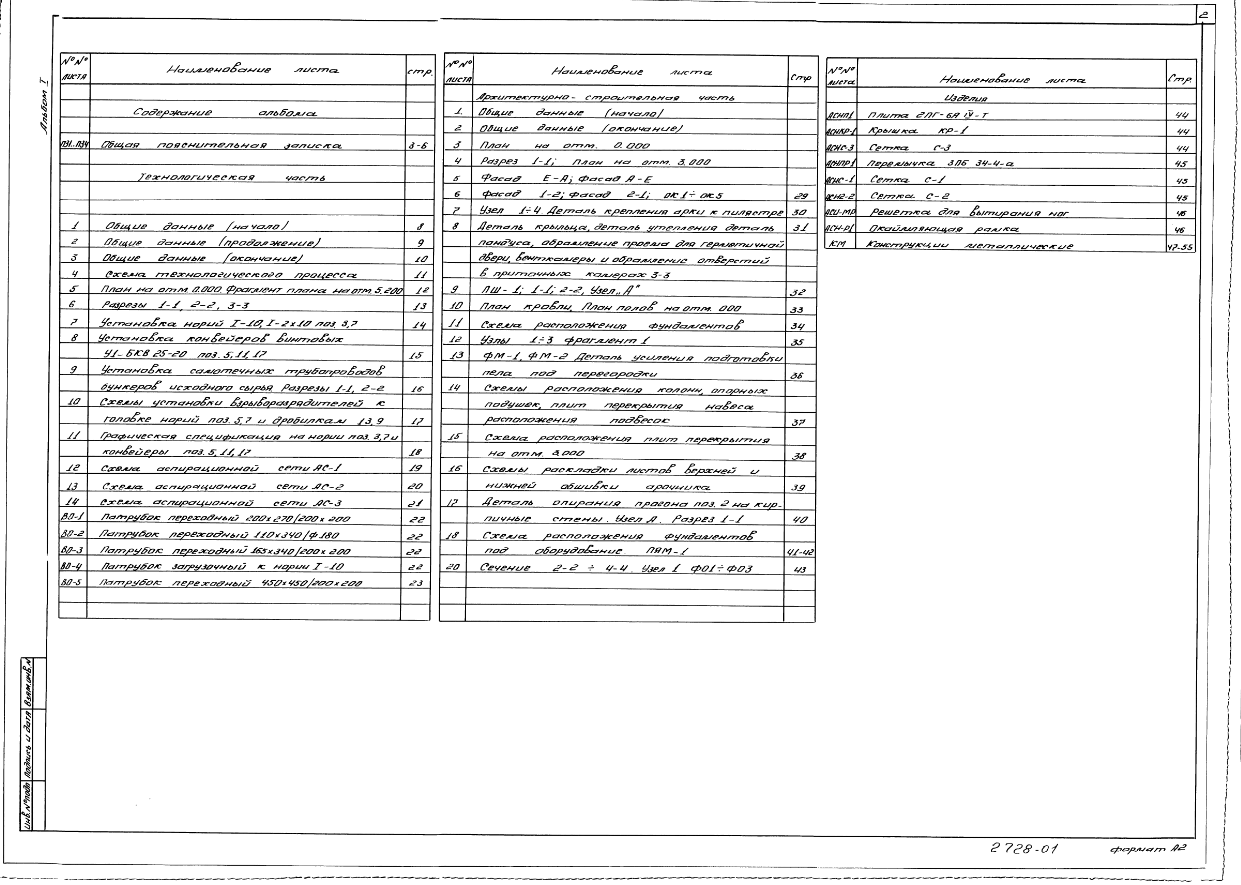 2
Альбом I
№№ листа Наименование листа стр.
Содержание альбома
ПЗ1..ПЗ4 Общая пояснительная записка 3-6
Технологическая часть
1 Общие данные (начало) 8
2 Общие данные (продолжение) 9
3 Общие данные (окончание) 10
4 Схема технологического процесса 11
5 План на отм. 0.000. Фрагмент плана на отм. 5.200 12
6 Разрезы 1-1, 2-2, 3-3 13
7 Установка норий I-10, I-2х10 поз. 3,7 14
8 Установка конвейеров винтовых
У1-БКВ 25-20 поз. 5, 11, 17 15
9 Установка самотечных трубопроводов
бункеров исходного сырья. Разрезы 1-1, 2-2 16
10 Схемы установки взрыворазрядителей к
головке норий поз. 5,7 и дробилкам 13,9 17
11 Графическая спецификация на нории поз. 3,7 и
конвейеры поз. 5, 11, 17 18
12 Схема аспирационной сети АС-1 19
13 Схема аспирационной сети АС-2 20
14 Схема аспирационной сети АС-3 21
ВО-1 Патрубок переходный 200х270/200х200 22
ВО-2 Патрубок переходный 110х340/ф180 22
ВО-3 Патрубок переходный 165х340/200х200 22
ВО-4 Патрубок загрузочный к нории I-10 22
ВО-5 Патрубок переходный 450х450/200х200 23
№№ листа Наименование листа Стр
Архитектурно-строительная часть
1. Общие данные (начало)
2 Общие данные (окончание)
3 План на отм. 0.000
4 Разрез 1-1; План на отм. 3.000
5 Фасад Е-А; Фасад А-Е
6 Фасад 1-2; фасад 2-1; ОК1÷ОК5 29
7 Узел 1÷4 Деталь крепления арки к пилястре 30
8 Деталь крыльца, деталь утепления деталь 31
пандуса, обрамление проема для герметичной
двери, венткамеры и обрамление отверстий
в приточных камерах 3-3
9 ПШ-1; 1-1; 2-2, Узел „А" 32
10 План кровли, План полов на отм. 000 33
11 Схема расположения фундаментов 34
12 Узлы 1÷3 фрагмент 1 35
13 ФМ-1, ФМ-2 Деталь усиления подготовки
пола под перегородки 36
14 Схемы расположения колонн, опорных
подушек, плит перекрытия навеса
расположения подвесок 37
15 Схема расположения плит перекрытия
на отм. 3.000 38
16 Схемы раскладки листов верхней и
нижней обшивки арочника 39
17 Деталь опирания прогона поз. 2 на кир-
пичные стены. Узел А. Разрез 1-1 40
18 Схема расположения фундаментов
под оборудование ПЯМ-1 41-42
20 Сечение 2-2 ÷ 4-4. Узел 1 Ф01÷Ф03 43
№№ листа Наименование листа Стр.
Изделия
АСНП1 Плита 2ПГ-6А IV-Т 44
АСНКР-1 Крышка КР-1 44
АСНС-3 Сетка С-3 44
АСНПР1 Перемычка 3ПБ 34-4-а 45
АСНС-1 Сетка С-1 45
Сетка С-2 45
АСИ-МР Решетка для вытирания ног 46
АСН-Р1 Окаймляющая рамка 46
КМ Конструкции металлические 47-55
Инв.№ подл Подпись и дата Взам.инв.№
2728-01 формат А2